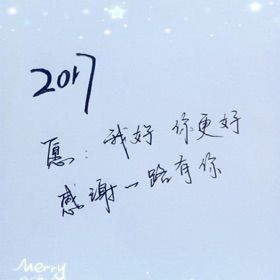 2017
愿：我好 你更好
感谢一路有你
Merry